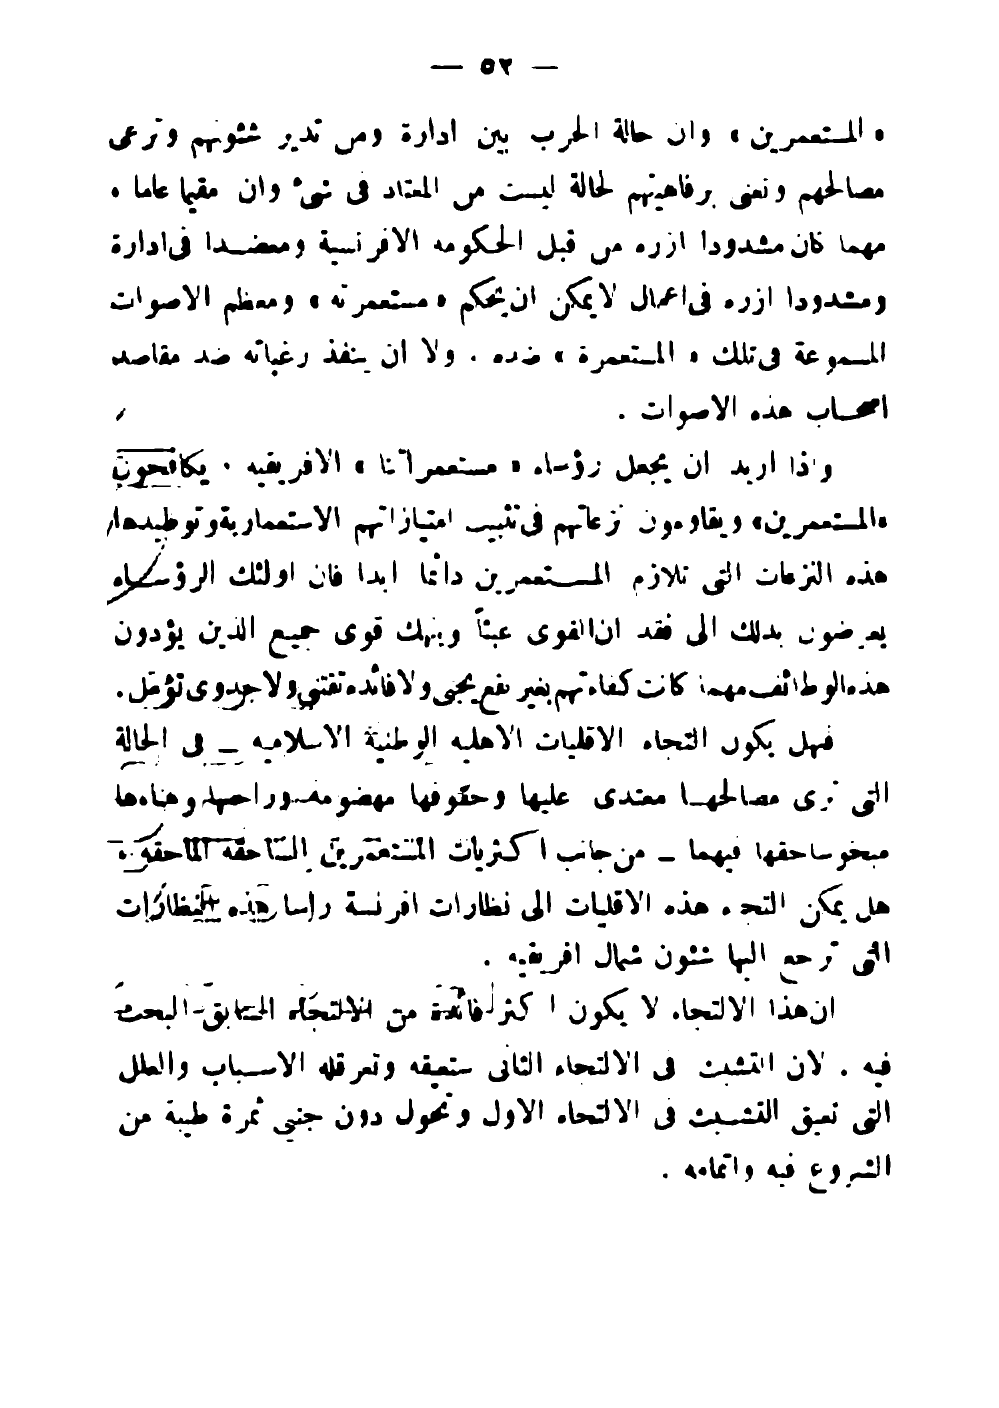 — ٥٢ —
« المستعمرين » وان حالة الحرب بين ادارة ومن تدير شئونهم وترعى
مصالحهم وتعنى برفاهيتهم لحالة ليست من المعتاد فى شىء وان مقيما عاما .
مهما كان مشدودا ازره من قبل الحكومه الافرنسية ومعضدا فى ادارة
ومشدودا ازره فى اعمال لا يمكن ان يحكم « مستعمرته » ومعظم الاصوات
المسموعة فى تلك « المستعمرة » ضده . ولا ان ينفذ رغباته ضد مقاصد
اصحاب هذه الاصوات .
واذا اريد ان يجعل رؤساء « مستعمراتنا » الافريقيه . يكافحون
«المستعمرين» ويقاومون نزعاتهم فى تثبيت امتيازاتهم الاستعمارية وتوطيدها
هذه النزعات التى تلازم المستعمرين دائما ابدا فان اولئك الرؤساء
يعرضون بذلك الى فقدان القوى عبثاً وينهك قوى جميع الذين يؤدون
هذه الوظائف مهما كانت كفاءتهم بغير نفع يجنى ولا فائده تقتنى ولا جدوى تؤمل.
فهل يكون التجاء الاقليات الاهليه الوطنية الاسلاميه ــ فى الحالة
التى ترى مصالحها معتدى عليها وحقوقها مهضومة وراحتها وهناءها
مبخوسا حقها فيهما ــ من جانب اكثريات المستعمرين الساحقه الماحقه .
هل يمكن التجاء هذه الاقليات الى نظارات افرنسة راسا هذه النظارات
التى ترجع اليها شئون شمال افريقيه .
ان هذا الالتجاء لا يكون اكثر فائدة من الالتجاء السابق البحث
فيه . لان التشبث فى الالتجاء الثانى ستعيقه وتعرقله الاسباب والعلل
التى تعيق التشبث فى الالتجاء الاول وتحول دون جنى ثمرة طيبة من
الشروع فيه واتمامه .